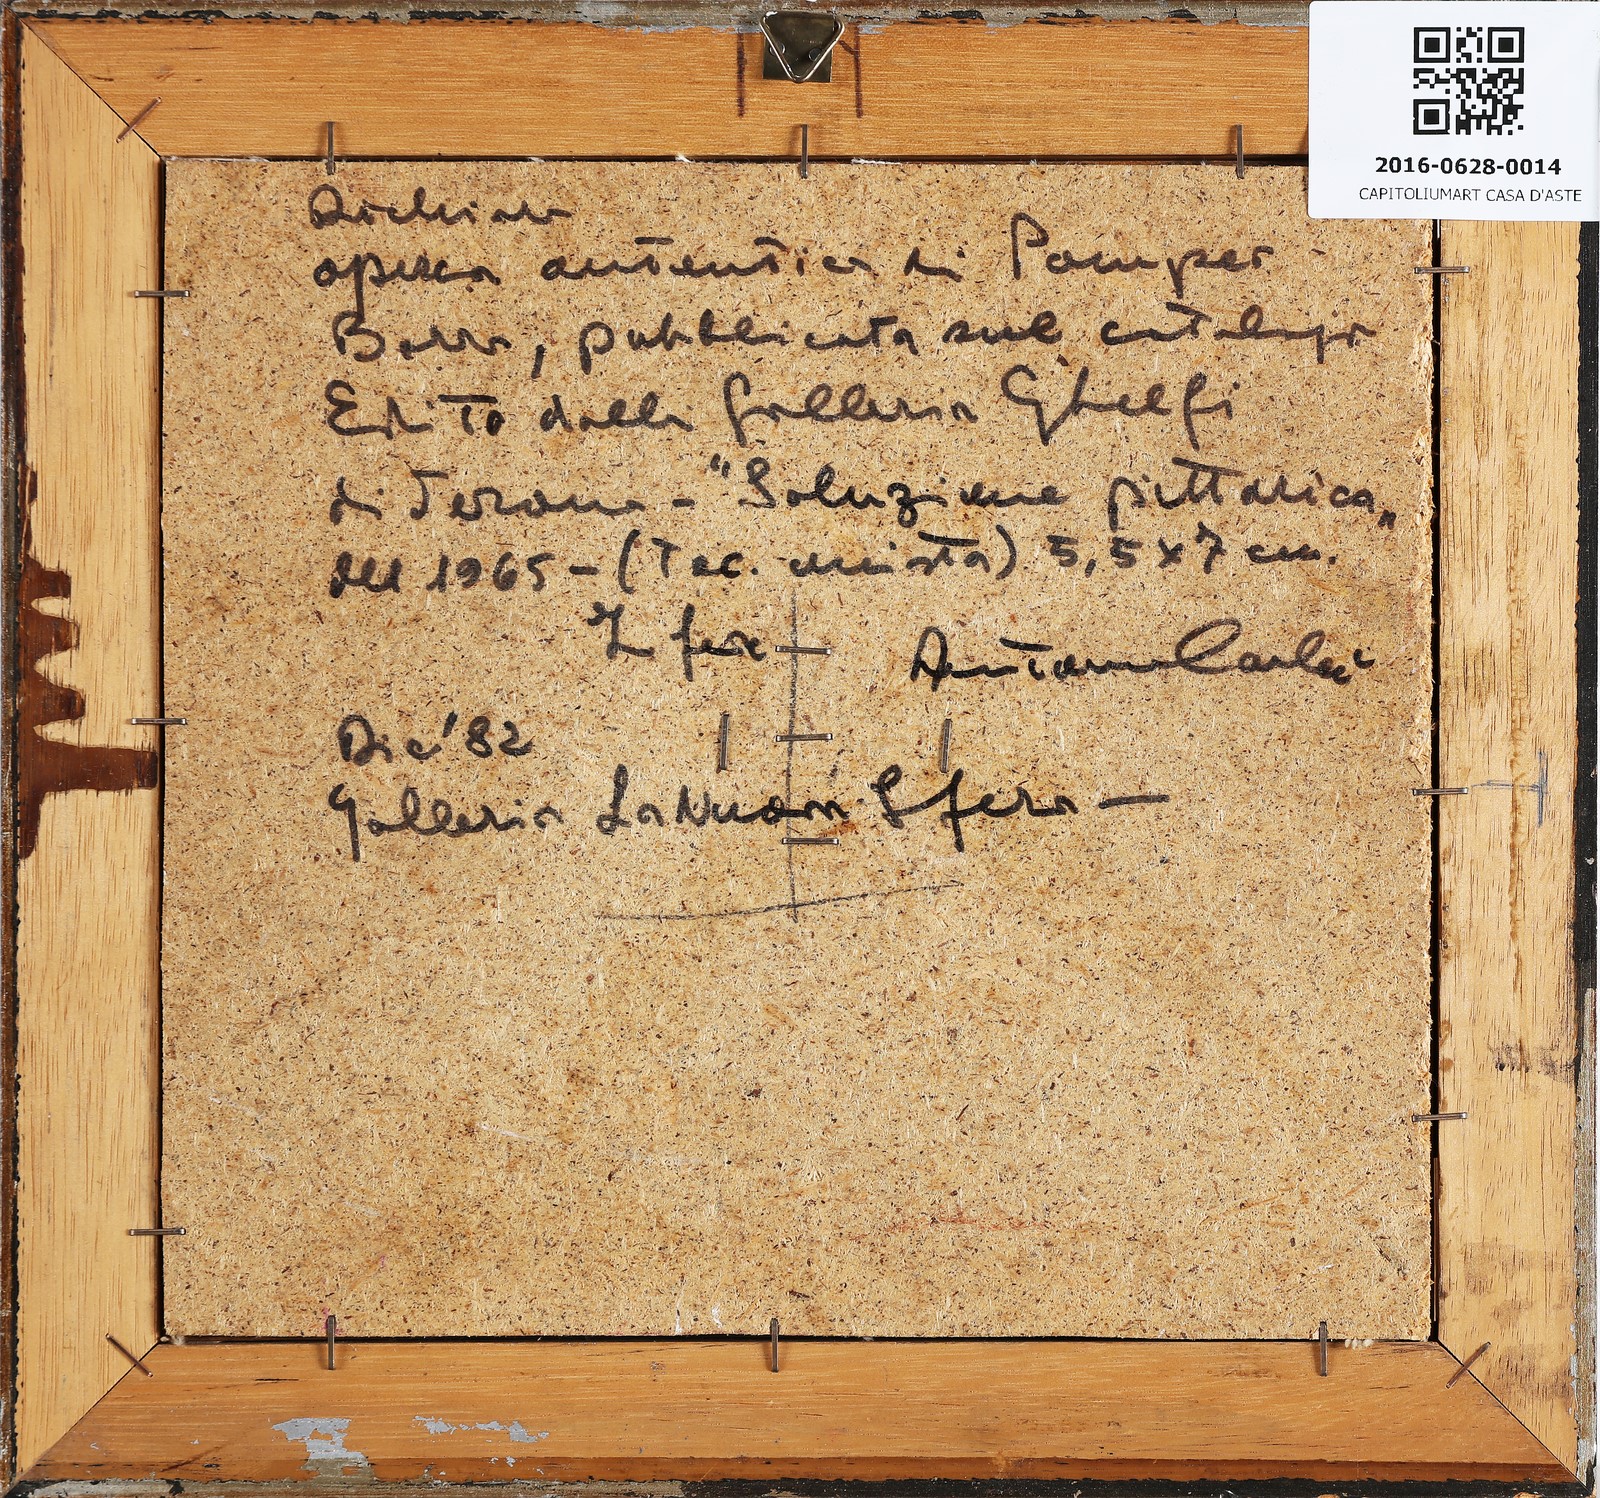 2016-0628-0014
CAPITOLIUMART CASA D'ASTE
Dichiaro
opera autentica di Pompeo
Borra, pubblicata sul catalogo
Edito dalla Galleria Ghelfi
di Verona - "Soluzione pittorica"
del 1965 - (Tec. mista) 5,5 x 7 cm.
In fede
Dic '82
Galleria La Nuova Sfera -